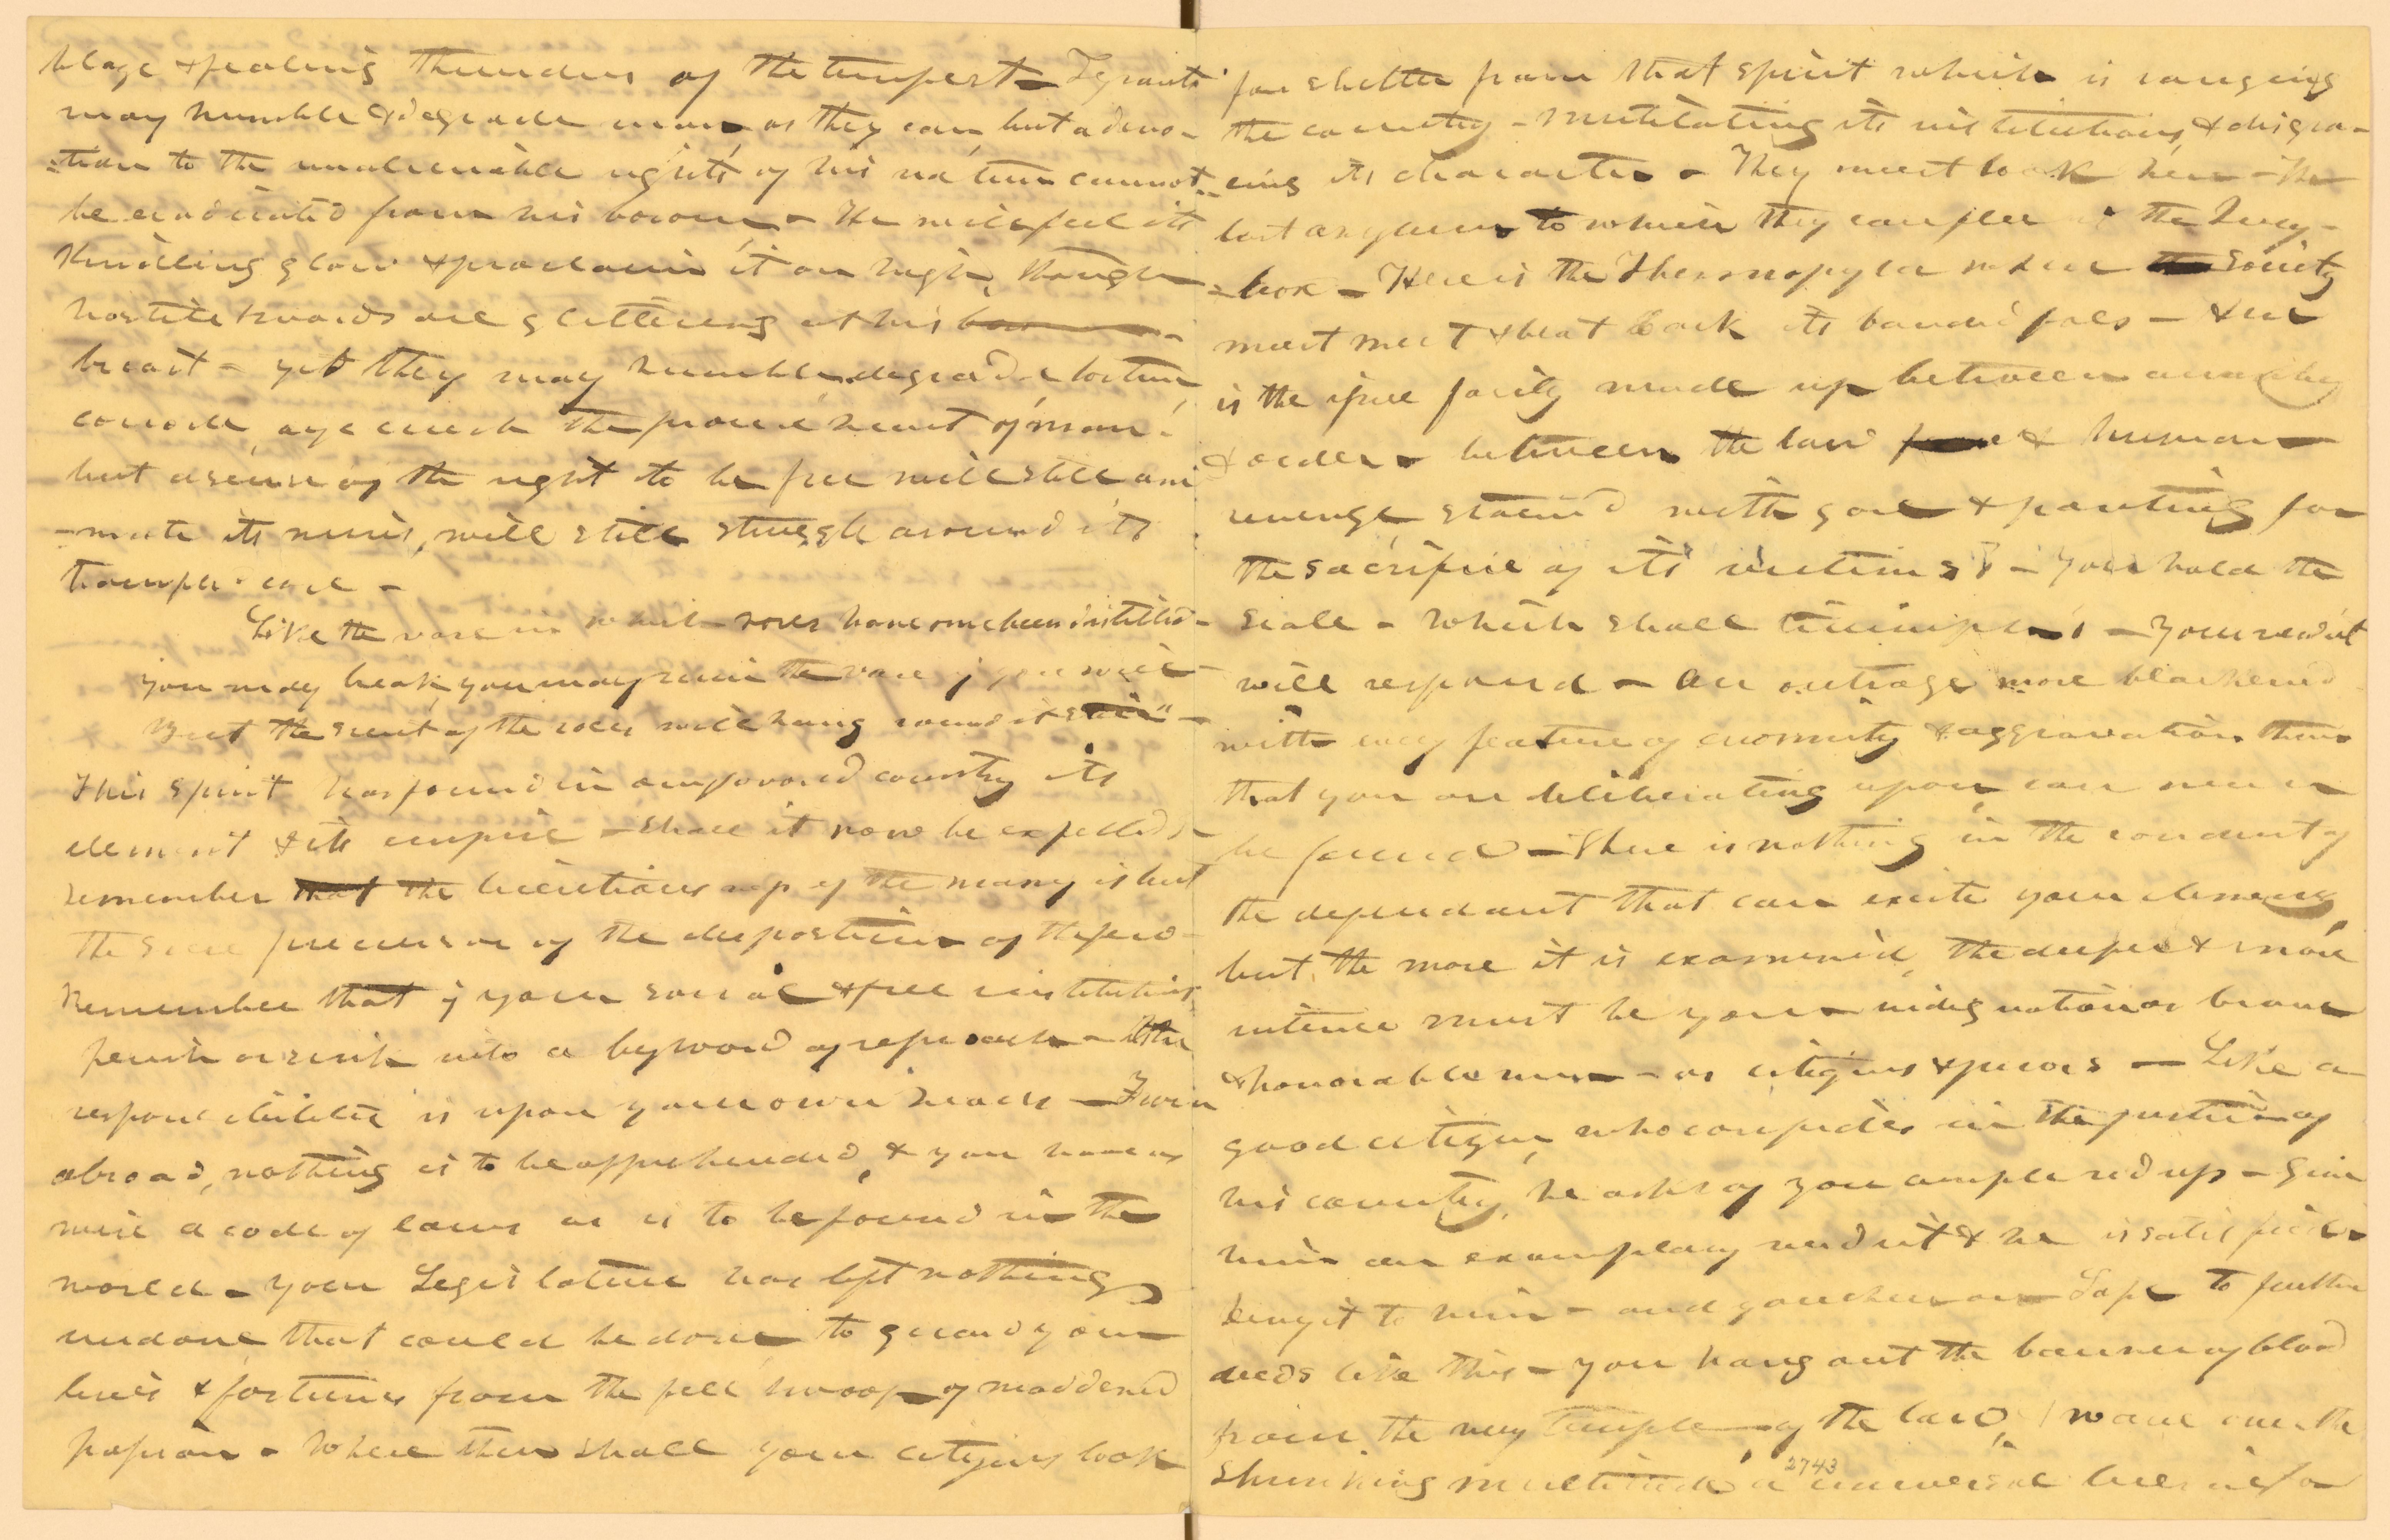 blaze & pealing thunders of the tempest – Tyrants
may humble & degrade man, as they can, but a devo-
-tion to the unalienable rights of his nature cannot
be eradicated from his bosom – He will feel its
kindling glow & proclaim it on high, though
hostile swords are glittering at his
breast – yet they may humble, degrade & torture,
corrode, aye crush the proud heart of man,
but a sense of the right to be free will still ani
-mate its ruins, will still struggle around its
trampled
Like the vase in which roses have once been distilled –
you may break, you may ruin the vase if you will –
But the scent of the roses will hang round it still" –
This spirit has found in our favored country its
element & its empire – shall it now be expelled –
remember that the licentiousness of the many is but
the sure precursor of the despotism of the few –
Remember that if your social & free institutions
perish or sink into a byword of reproach – the
responsibility is upon your own heads – From
abroad, nothing is to be apprehended, & you have as
wise a code of laws as is to be found in the
world – your Legislature has left nothing
undone that could be done, to guard your
lives & fortunes from the fell swoop of maddened
passion – Where then shall your citizens look
for shelter from that spirit which is ranging
the country – mutilating its institutions, & disgra-
-cing its character – They must look here – The
last asylum to which they can flee is the Jury-
-box – Here is the Thermopylae where the society
must meet & beat back its banded foes – Here
is the issue fairly made up between anarchy
& order – between the law & human
revenge, stained with gore & panting for
the sacrifice of its victims? – You hold the
scale – Which shall triumph – your verdict
will respond – An outrage more blackened
with every feature of enormity & aggravation than
that you are deliberating upon, can never
be found – There is nothing in the conduct of
the dependant that can excite your clemency,
but, the more it is examined, the deeper & more
intense must be your indignation as brave
& honorable men – as citizens & jurors – Like a
good citizen, who confides in the justice of
his country, he asks of you ample redress – Give
him an exemplary verdict & he is satisfied –
Deny it to him – and you throw open to further
deeds like this – you hang out the banner of blood
from the very temple of the law, & wave over the
shrinking multitude a universal license for
2743